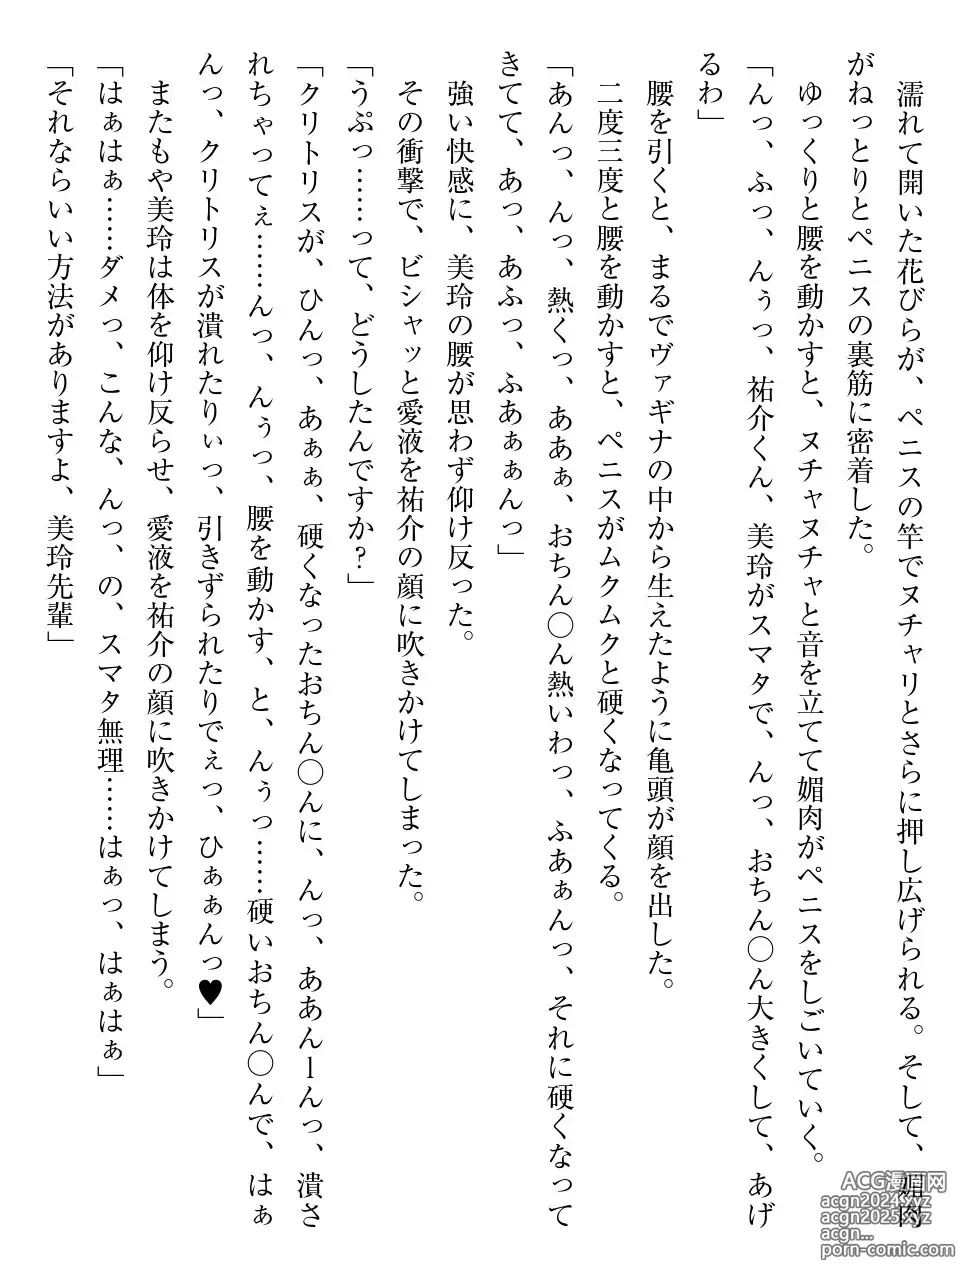 濡れて開いた花びらが、ペニスの竿でヌチャリとさらに押し広げられる。そして、媚肉
がねっとりとペニスの裏筋に密着した。
ゆっくりと腰を動かすと、ヌチャヌチャと音を立てて媚肉がペニスをしごいていく。
「んっ、ふっ、んぅっ、祐介くん、美玲がスマタで、んっ、おちん◯ん大きくして、あげ
るわ」
腰を引くと、まるでヴァギナの中から生えたように亀頭が顔を出した。
二度三度と腰を動かすと、ペニスがムクムクと硬くなってくる。
「あんっ、んっ、熱くっ、ああぁ、おちん◯ん熱いわっ、ふあぁんっ、それに硬くなって
きてて、あっ、あふっ、ふあぁぁんっ」
強い快感に、美玲の腰が思わず仰け反った。
その衝撃で、ビシャッと愛液を祐介の顔に吹きかけてしまった。
「うぷっ……って、どうしたんですか?」
「クリトリスが、ひんっ、あぁぁ、硬くなったおちん◯んに、んっ、ああんーんっ、潰さ
れちゃってぇ……んっ、んぅっ、腰を動かす、と、んぅっ……硬いおちん◯んで、はぁ
んっ、クリトリスが潰れたりぃっ、引きずられたりでぇっ、ひぁぁんっ♥」
またもや美玲は体を仰け反らせ、愛液を祐介の顔に吹きかけてしまう。
「はぁはぁ……ダメっ、こんな、んっ、の、スマタ無理……はぁっ、はぁはぁ」
「それならいい方法がありますよ、美玲先輩」
ACG漫画网
acgn2024.xyz
acgn2025.xyz
acgn...
porn-comic.com